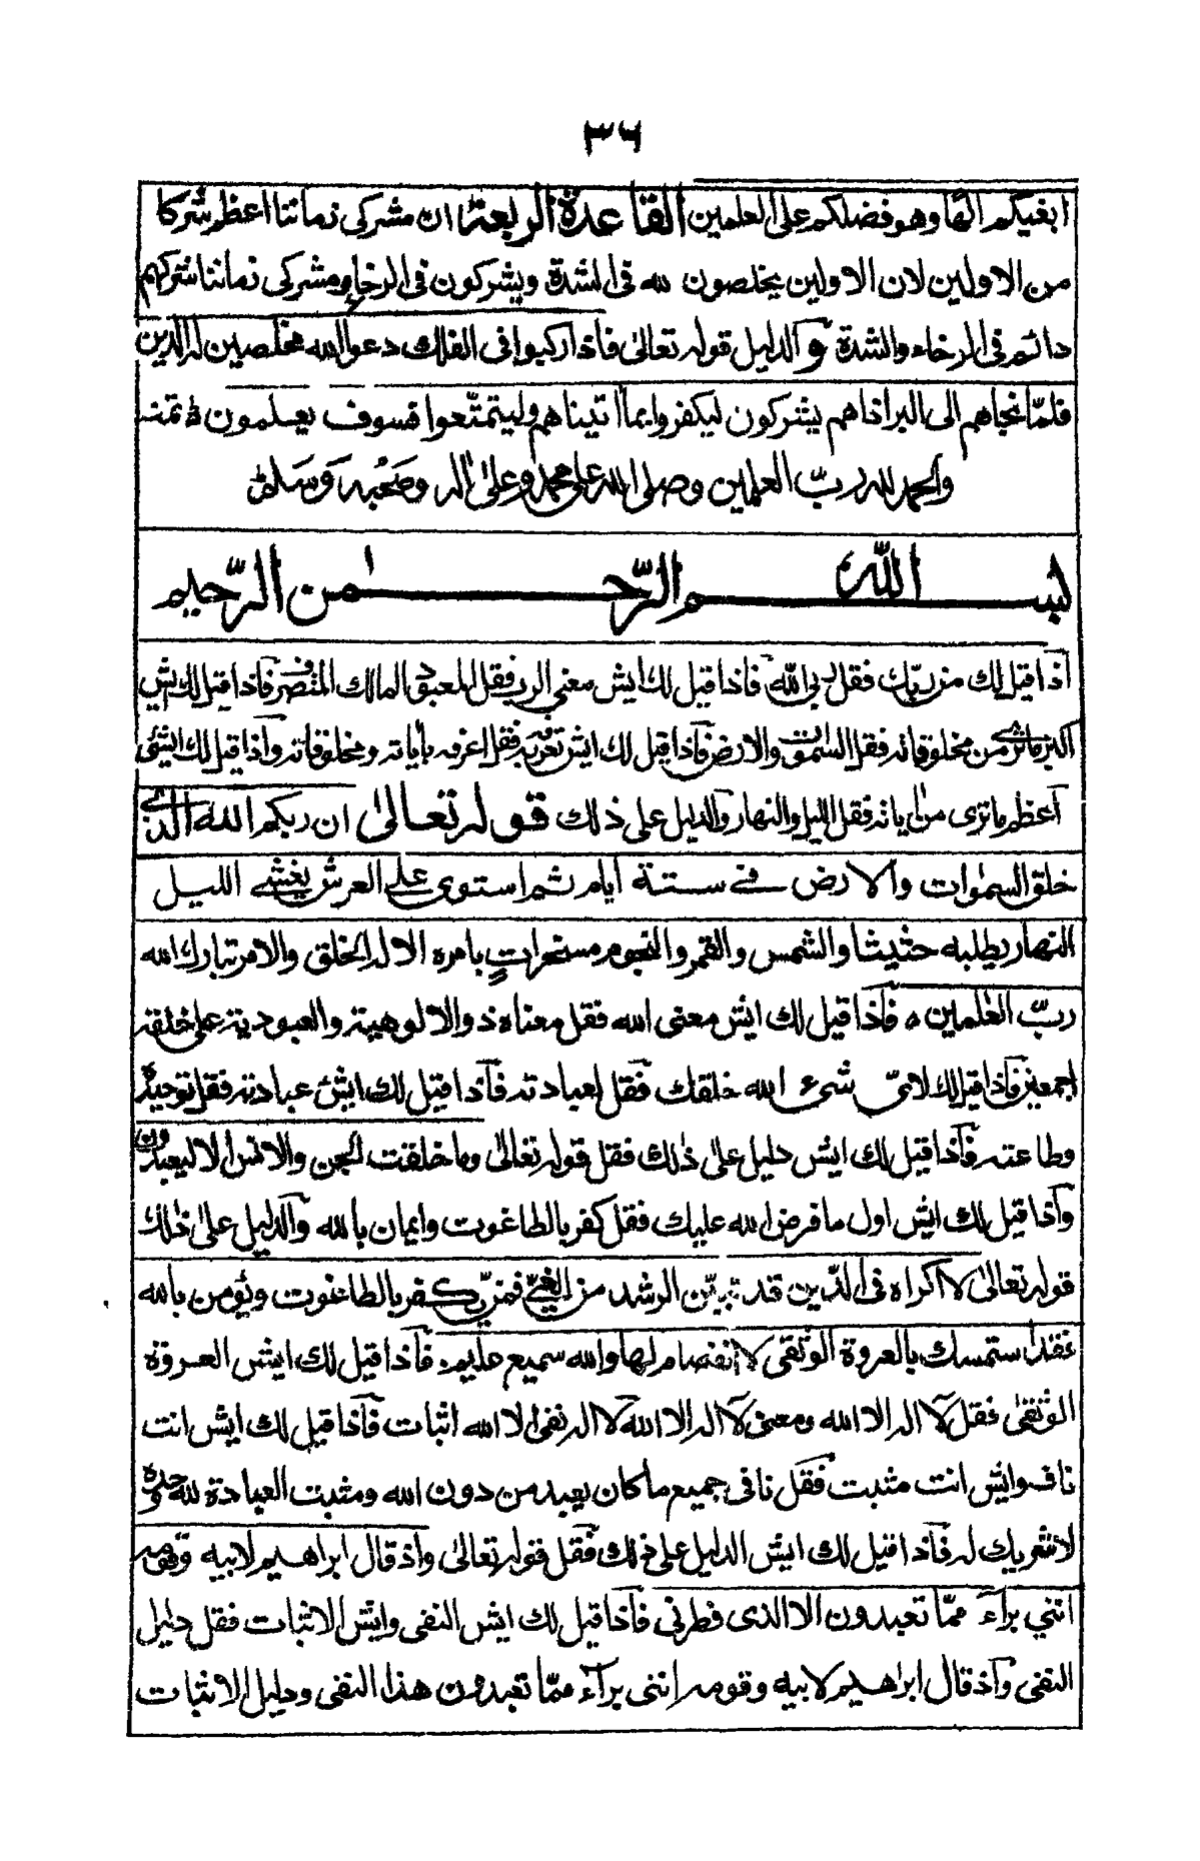 ٣٦
ابغيكم الٰهًا وهو فضلكم على العلمين القاعدة الربعة ان مشركى زماننا اعظم شركا
من الاولين لان الاولين يخلصون لله فى الشدة ويشركون فى الرخاء ومشركى زماننا شركهم
دائم فى الرخاء والشدة والدليل قوله تعالىٰ فاذا ركبوا فى الفلك دعوا الله مخلصين له الدين
فلمّا نجاهم الى البر اذا هم يشركون ليكفروا بما اتيناهم وليتمتّعوا فسوف يعلمون ٥ تمت
والحمد لله ربّ العلمين وصلى الله على محمد وعلىٰ اٰله وصَحْبِه وَسَلَّم
بســـم الله الرّحـــمٰن الرّحيم
اذا قيل لك من ربّك فقل ربى اللّٰه فاذا قيل لك ايش معنى الرب فقل المعبود المالك المتصرف فاذا قيل لك ايش
اكبر ماترى من مخلوقاته فقل السمٰوت والارض فاذا قيل لك ايش تعرفه به فقل اعرفه بأياته ومخلوقاته واذا قيل لك ايش
اعظم ماترى من اٰياته فقل الليل والنهار والدليل على ذلك قوله تعالىٰ ان ربكم الله الذى
خلق السمٰوات والارض فى ستة ايام ثم استوى على العرش يغشى الليل
النهار يطلبه حثيثا والشمس والقمر والنجوم مسخراتٍ بامره الا له الخلق والامر تبارك الله
ربّ العٰلمين ٥ فاذا قيل لك ايش معنى الله فقل معناه ذو الالوهية والعبودية على خلقه
اجمعين فاذا قيل لك لاىّ شىء الله خلقك فقل لعبادته فاذا قيل لك ايش عبادته فقل توحيده
وطاعته فاذا قيل لك ايش دليل علىٰ ذٰلك فقل قوله تعالىٰ وما خلقت الجن والانس الا ليعبدون
واذا قيل لك ايش اول ما فرض الله عليك فقل كفر بالطاغوت وايمان بالله والدليل علىٰ ذٰلك
قوله تعالىٰ لا اكراه فى الدّين قد تبيّن الرشد من الغىّ فمن يّكفر بالطاغوت ويؤمن بالله
فقد استمسك بالعروة الوثقى لا انفصام لها والله سميع عليم فاذا قيل لك ايش العروة
الوثقىٰ فقل لا اله الا الله ومعنى لا اله الا الله لا اله نفى الا الله اثبات فاذا قيل لك ايش انت
ناف وايش انت مثبت فقل نافى جميع ماكان يعبد من دون الله ومثبت العبادة لله وحده
لاشريك له فاذا قيل لك ايش الدليل على ذلك فقل قوله تعالىٰ واذ قال ابراهيم لابيه وقومه
اننى براٰء ممّا تعبدون الا الذى فطرنى فاذا قيل لك ايش النفى وايش الاثبات فقل دليل
النفى واذ قال ابراهيم لابيه وقومه اننى براٰء ممّا تعبدون هذا النفى ودليل الاثبات